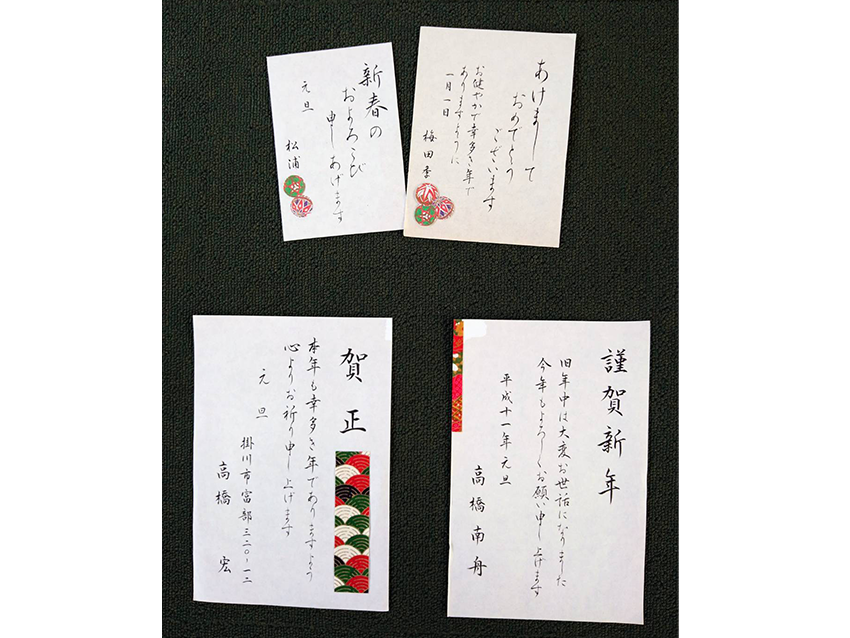 あけまして
おめでとう
ございます
お健やかで幸多き年で
ありますように
一月一日
梅田
新春の
およろこび
申しあげます
元旦
松浦
謹賀新年
旧年中は大変お世話になりました
今年もよろしくお願い申し上げます
平成十一年 元旦
高橋南舟
賀正
本年も幸多き年でありますよう
心よりお祈り申し上げます
元旦
掛川市富部三二〇-一二
高橋 宏